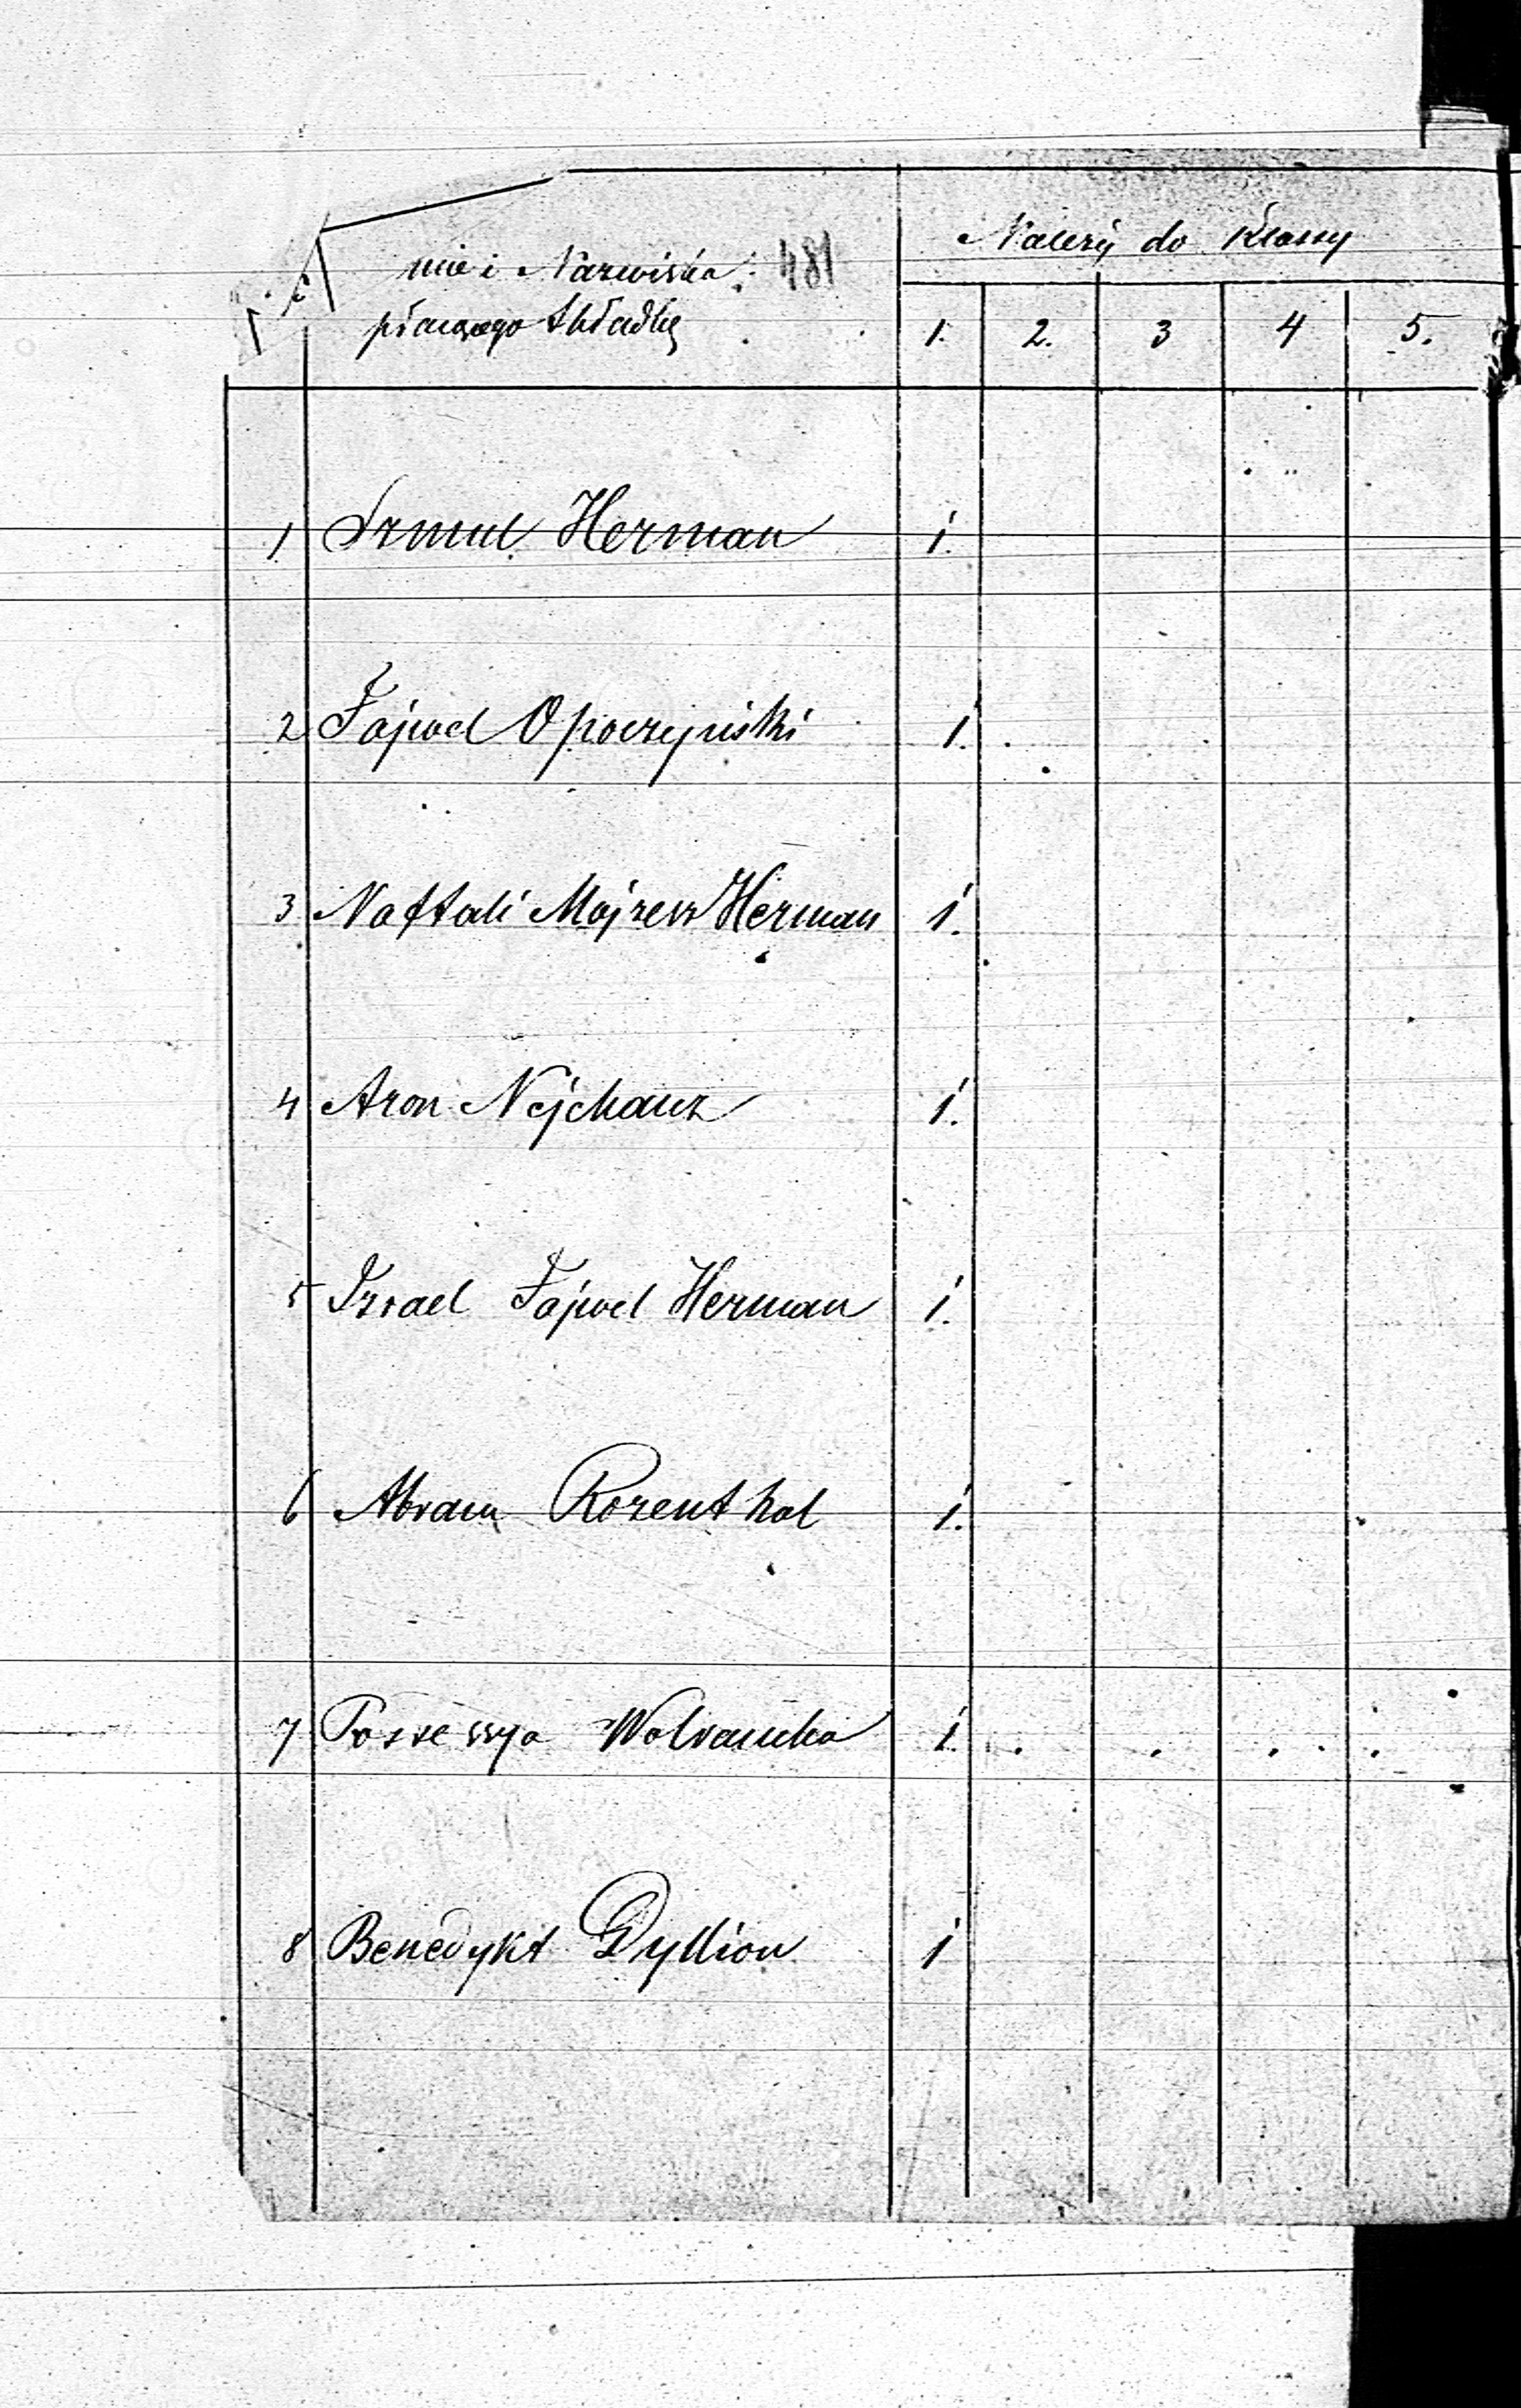 mie i Nazwiska 481
płacącego składkę
Należy do Klassy
1. 2. 3 4 5.
1 Szmul Herman 1.
2 Fajwel Opoczyński 1.
3 Naftali Mojzesz Herman 1.
4 Aron Nejchauz 1.
5 Izrael Fajwel Herman 1.
6 Abram Rozenthal 1.
7 Possessya Wolrańska 1.
8 Benedykt Dyllion 1